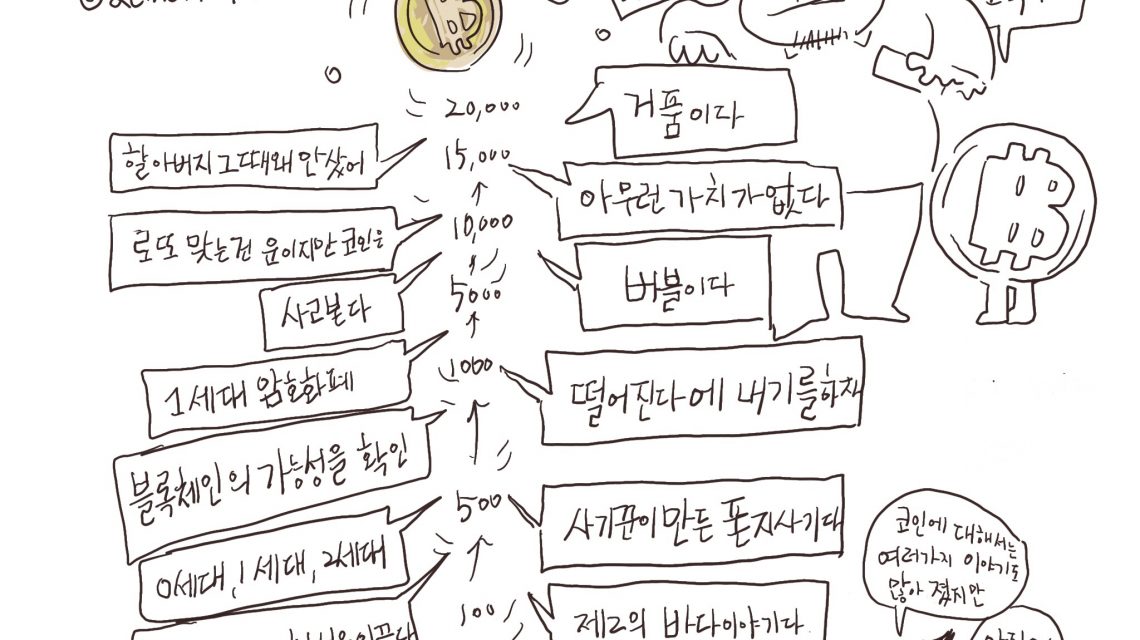 20,000
거품이다
할아버지 그때 왜 안샀어
15,000
아무런 가치가 없다
로또 맞는건 운이지만 코인은
10,000
버블이다
사고본다
5000
1세대 암호화폐
1000
떨어진다에 내기를하자
블록체인의 가능성을 확인
500
사기꾼이 만든 폰지사기다
0세대, 1세대, 2세대
100
제2의 바다이야기다
코인에 대해서는
여러가지 이야기도
많아 졌지만